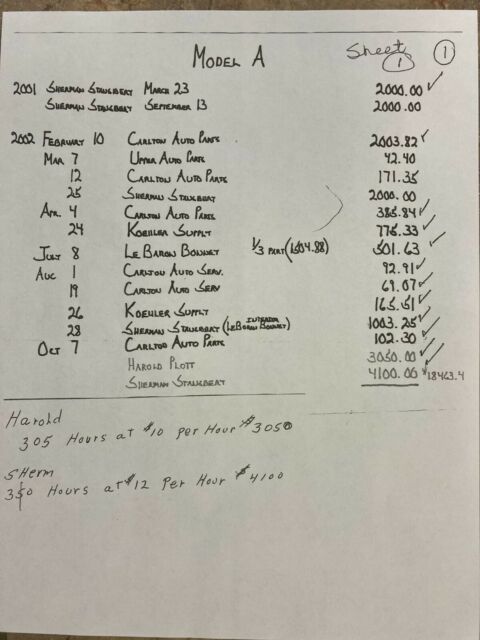 Model A Sheet 1 1
2001 Sherman Stalkbert March 23 2000.00 ✓
Sherman Stalkbert September 13 2000.00
2002 February 10 Carlton Auto Parts 2003.82 ✓
Mar 7 Upper Auto Parts 42.40
12 Carlton Auto Parts 171.35
25 Sherman Stalkbert 2000.00
Apr. 4 Carlton Auto Parts 385.84 ✓
24 Koehler Supply 776.33 ✓
July 8 LeBaron Bonney 1/3 part (1504.88) 501.63 ✓
Aug 1 Carlton Auto Serv. 92.91 ✓
19 Carlton Auto Serv 69.07 ✓
26 Koehler Supply 165.51 ✓
28 Sherman Stalkbert (LeBaron Bonney) Interior 1003.25 ✓
Oct 7 Carlton Auto Parts 102.30 ✓
Harold Plott 3050.00 ✓
Sherman Stalkbert 4100.00 18463.4
Harold
305 Hours at $10 Per Hour $3050
SHerm
Hours at $12 Per Hour $4100